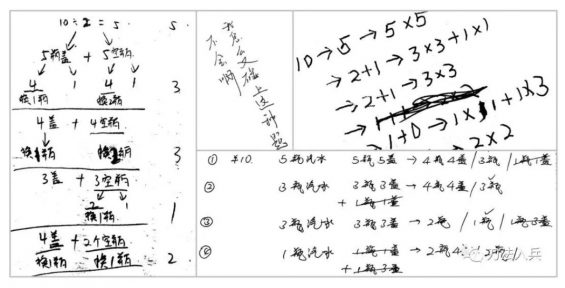 10 ÷ 2 = 5 5
5瓶盖 + 5空瓶
4 1 4 1 3
换1瓶 换2瓶
4盖 + 4空瓶
换1瓶 换2瓶 3
3盖 + 3空瓶
2 1 1
换1瓶
4盖 + 2个空瓶
换1瓶 换1瓶 2
我怎么又碰上这种题
不会啊
10→5→5×5
→2+1→3×3+1×1
→2+1→3×3
→1+0→1×1+1×3
2×2
① 10 5瓶汽水 5瓶5盖 → 4瓶4盖/3瓶/1瓶1盖
② 3瓶汽水 3瓶3盖 → 4瓶4盖/3瓶
+1瓶1盖
③ 3瓶汽水 3瓶3盖 → 2瓶/1瓶/1瓶3盖
④ 1瓶汽水 1瓶1盖 → 2瓶4
+1瓶3盖